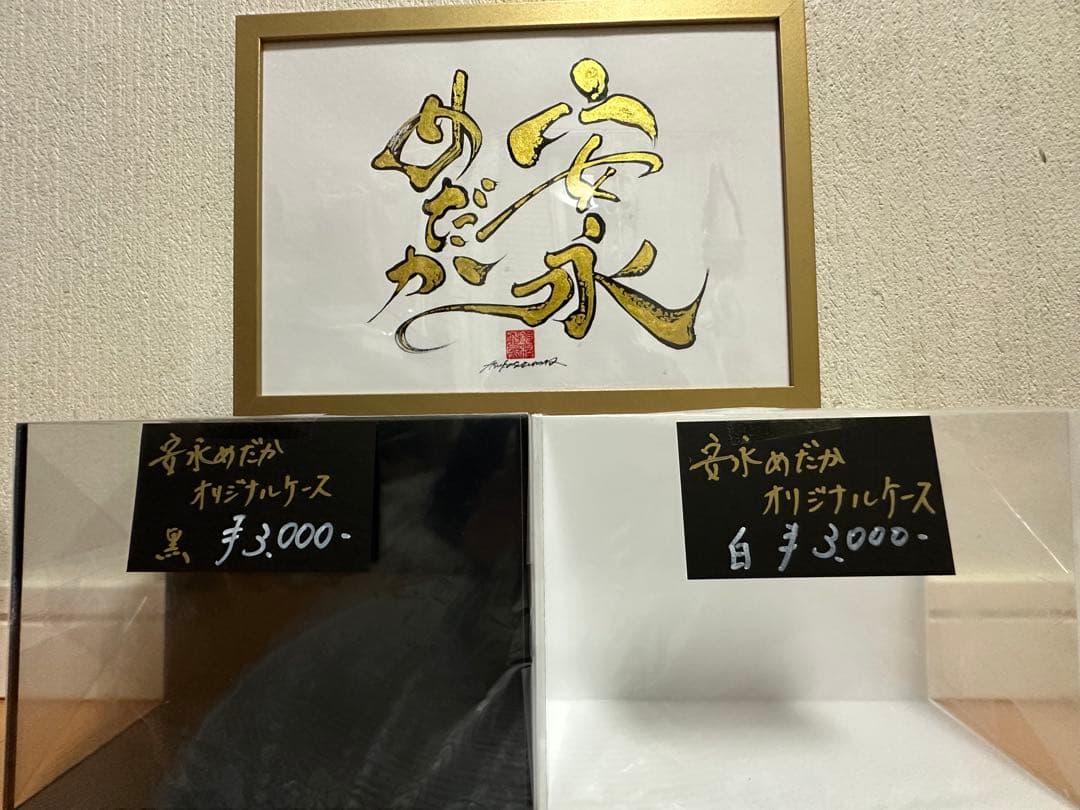 安永
めだか
安永めだか
オリジナルケース
黒 ¥3,000-
安永めだか
オリジナルケース
白 ¥3,000-